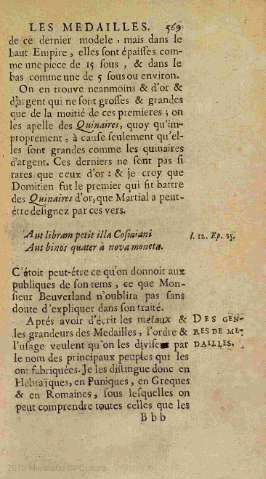 LES MEDAILLES. 569
de ce dernier modele. mais dans le
haut Empire, elles sont épaisses com-
me une piece de 15 sous, & dans le
bas comme une de 5 sous ou environ.
On en trouve neanmoins & d'or &
d'argent qui ne sont grosses & grandes
que de la moitié de ces premieres; on
les apelle des Quinaires, quoy qu'im-
proprement, à cause seulement qu'el-
les sont grandes comme les quinaires
d'argent. Ces derniers ne sont pas si
rares que ceux d'or: & je croy que
Domitien fut le premier qui fit battre
des Quinaires d'or, que Martial a peut-
étre designez par ces vers.
Aut libram petit illa Cosmiani l. 12. Ep. 25.
Aut binos quater à nova moneta.
C'étoit peut-étre ce qu'on donnoit aux
publiques de son tems, ce que Mon-
sieur Beuverland n'oublira pas sans
doute d'expliquer dans son traité.
Aprés avoir d'écrit les metaux & DES GEN-
les grandeurs des Medailles, l'ordre & RES DE ME-
l'usage veulent qu'on les divise par DAILLES.
le nom des principaux peuples qui les
ont fabriquées. Je les distingue donc en
Hebraïques, en Puniques, en Greques
& en Romaines, sous lesquelles on
peut comprendre toutes celles que les
B b b